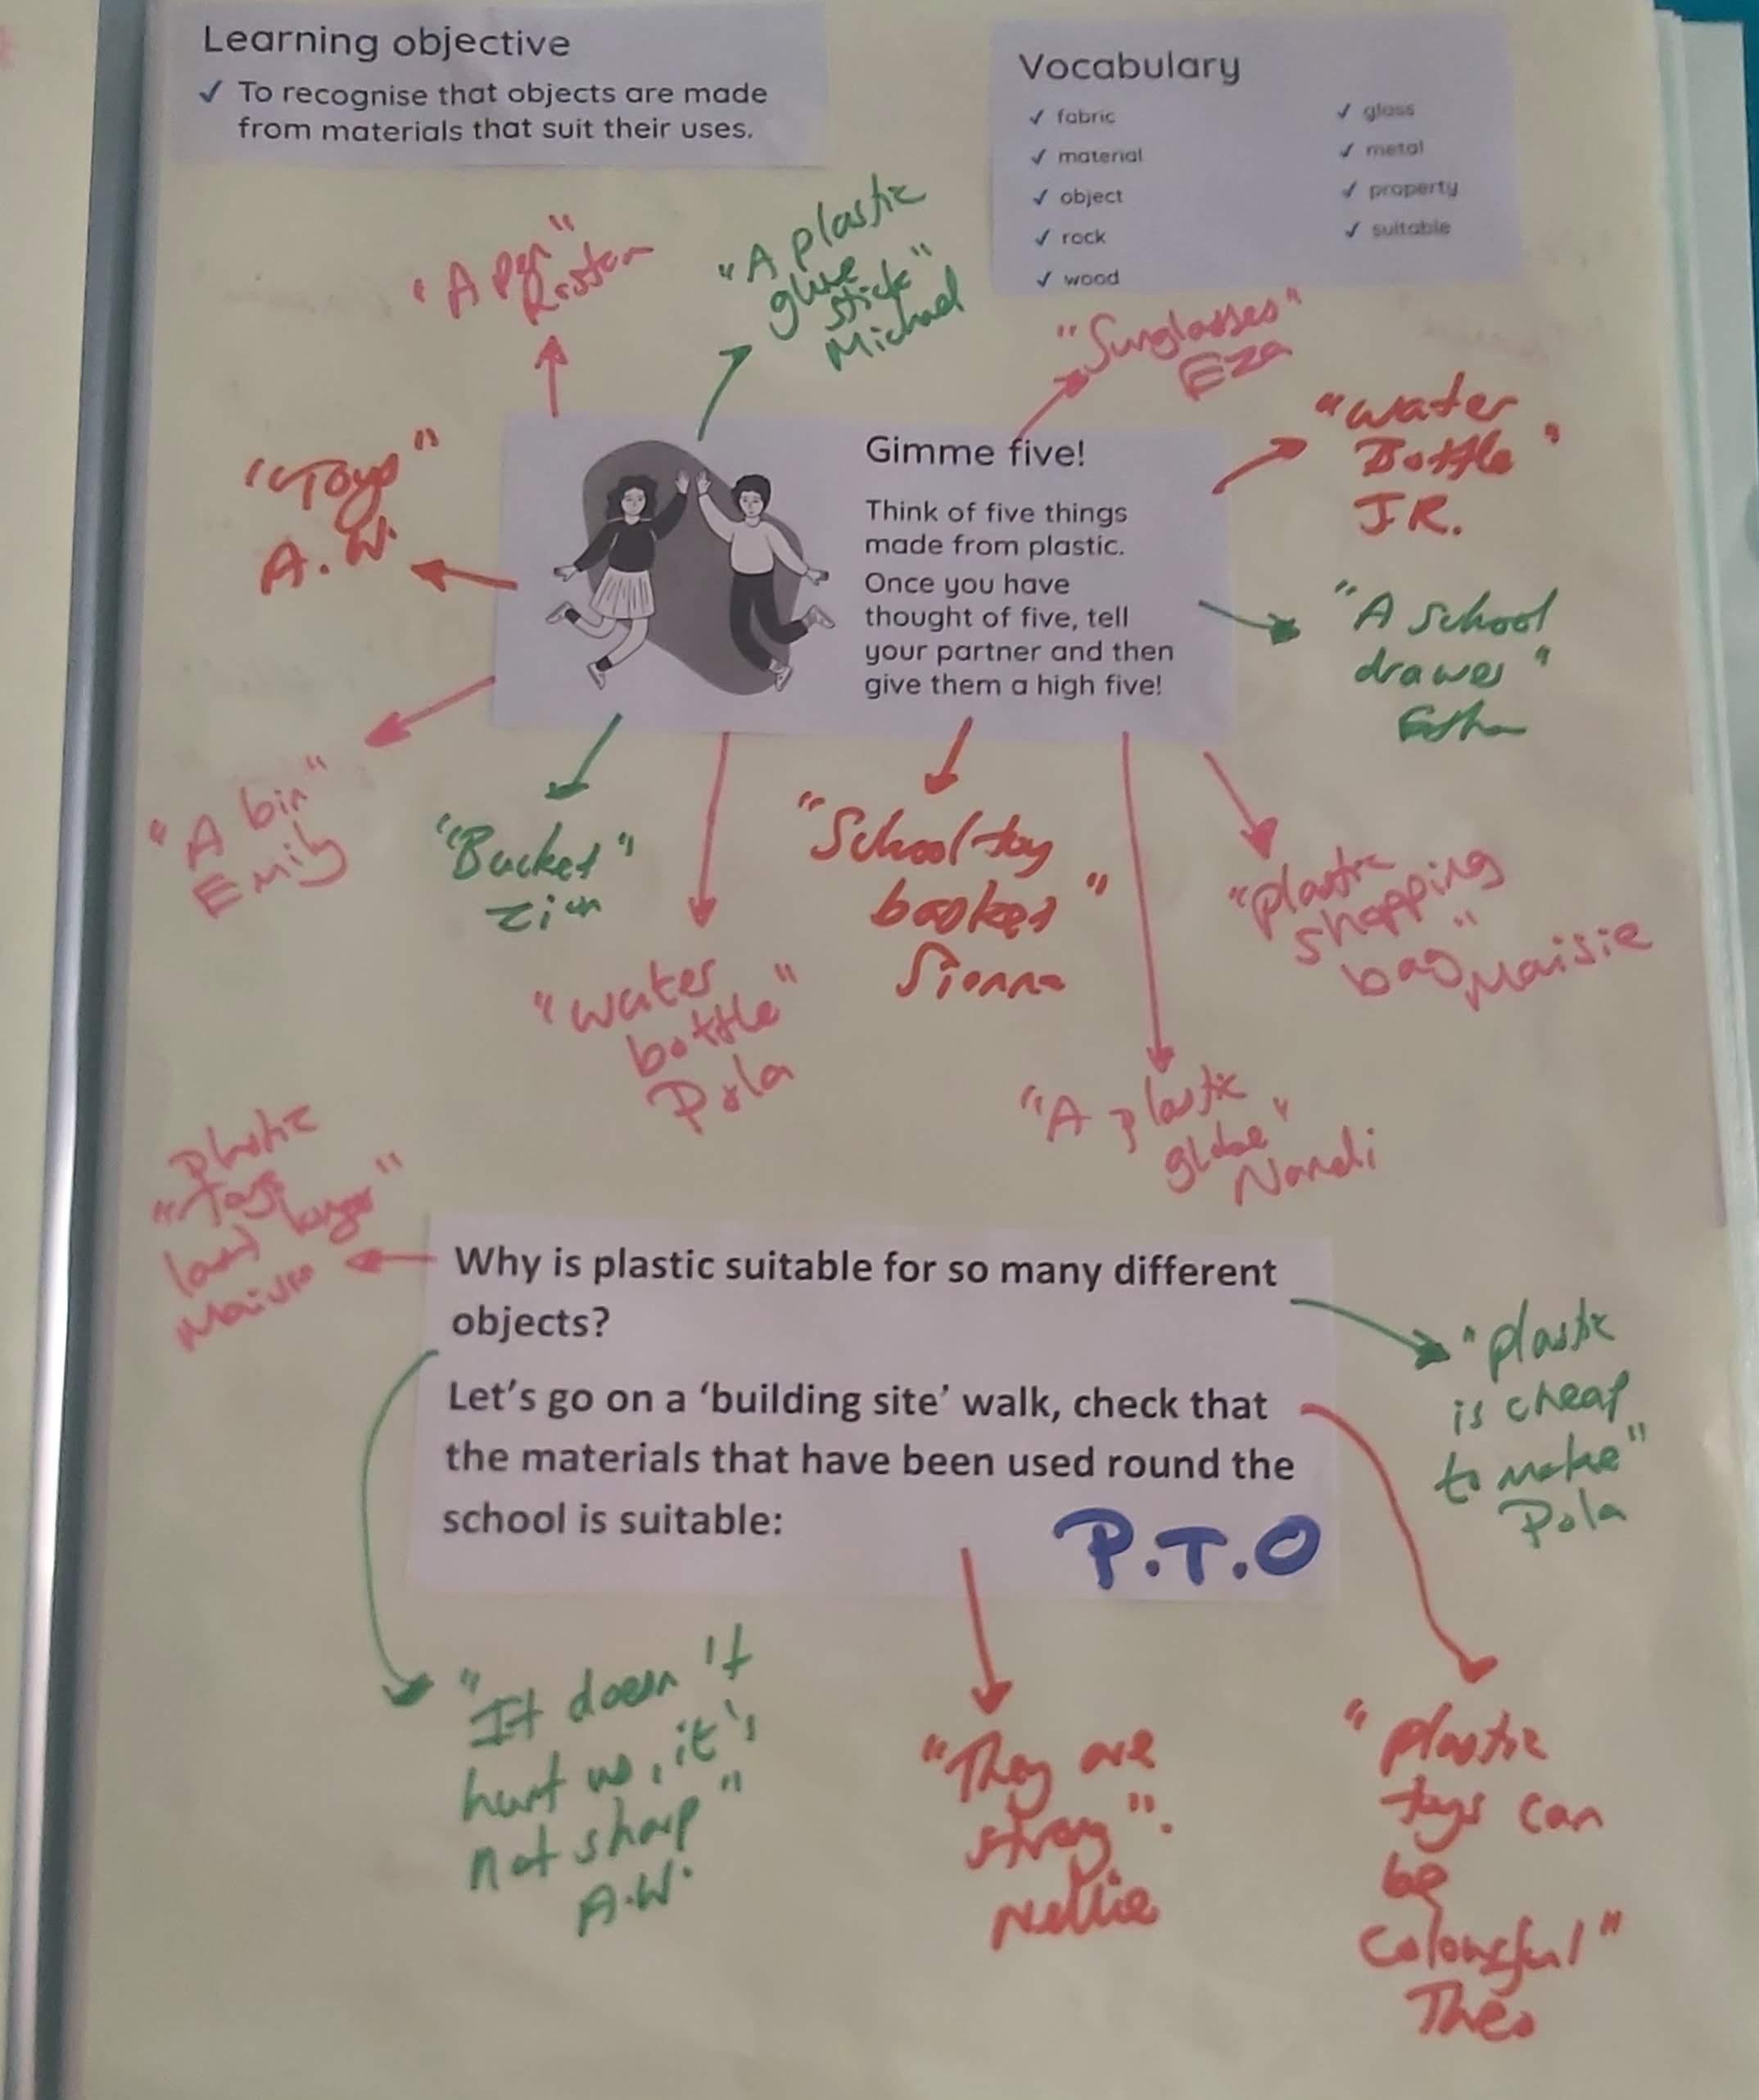 Learning objective
✓ To recognise that objects are made
from materials that suit their uses.
Vocabulary
✓ fabric
✓ material
✓ object
✓ rock
✓ wood
✓ glass
✓ metal
✓ property
✓ suitable
"A pen"
"A plastic
glue
stick"
Michael
"Sunglasses"
Eza
"water
Bottle"
JR.
"Toys"
A.W.
Gimme five!
Think of five things
made from plastic.
Once you have
thought of five, tell
your partner and then
give them a high five!
"A school
drawer"
"A bin"
Emily
"Bucket"
"water
bottle"
Pola
"School toy
basket"
Sienna
"plastic
shopping
bag"
Maisie
"A plastic
globe"
Nandi
plastic
"Toys
last longer"
Maisie
Why is plastic suitable for so many different
objects?
Let's go on a 'building site' walk, check that
the materials that have been used round the
school is suitable:
P.T.O
"plastic
is cheap
to make"
Pola
"It doesn't
hurt us, it's
not sharp"
A.W.
"They are
strong".
Nellie
"plastic
toys can
be
colourful"
Theo